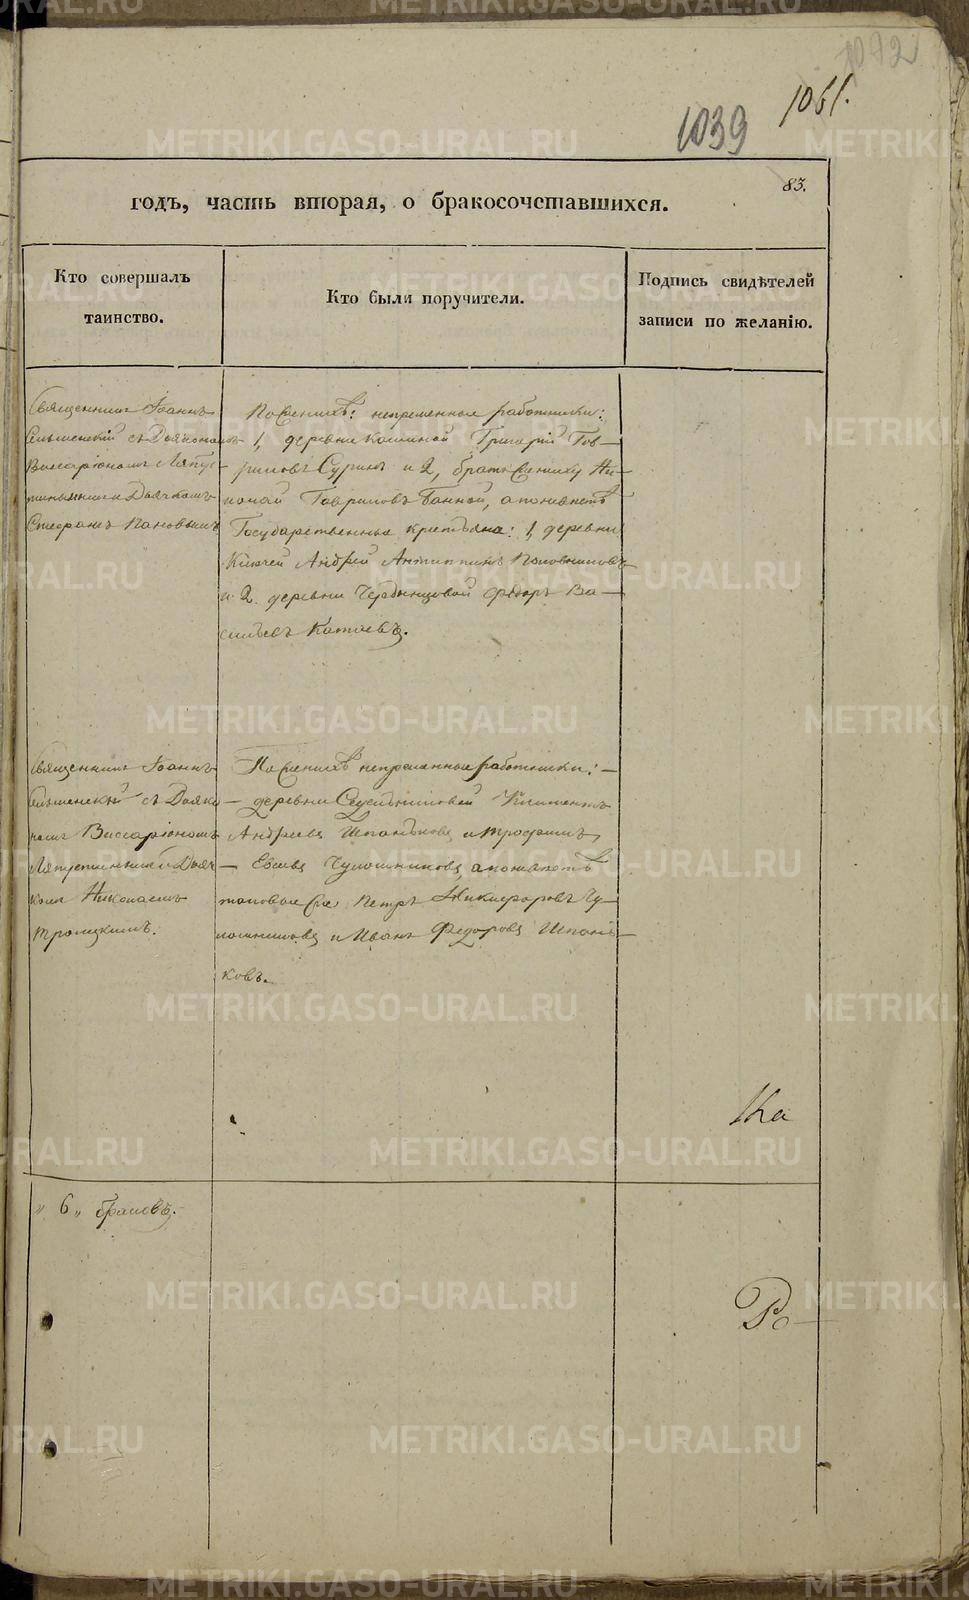 1092
1061.
1039
83.
годъ, часть вторая, о бракосочетавшихся.
Кто совершалъ
таинство.
Кто были поручители.
Подпись свидѣтелей
записи по желанію.
Священникъ Іоаннъ
съ Діакономъ
Виссаріономъ Ляпус-
тинымъ и Дьячкомъ
Стефаномъ Пановымъ
По женихѣ: непременные работники:
1, деревни Калиной Григорій Гав-
риловъ Суринъ и 2, братъ жениху Ни-
колай Гавриловъ Банной, а по невѣстѣ
Государственные крестьяна: 1, деревни
Ключей Андрей Антиппинъ Половниковъ
и 2. деревни Чердынцовой Федоръ Ва-
сильевъ Катаевъ.
Священникъ Іоаннъ
съ Діако-
номъ Виссаріономъ
Ляпустинымъ и Дьяч-
комъ Николаемъ
Троицкимъ.
По женихѣ непременные работники:
деревни Климентъ
Андреевъ Шпаньковъ и Трофимъ
Чулошниковъ, а по невѣстѣ
таковые же Петръ Никифоровъ Чу-
лошниковъ и Иванъ Федоровъ Шпань-
ковъ.
Ка
" 6 " браковъ.
Ро
METRIKI.GASO-URAL.RU